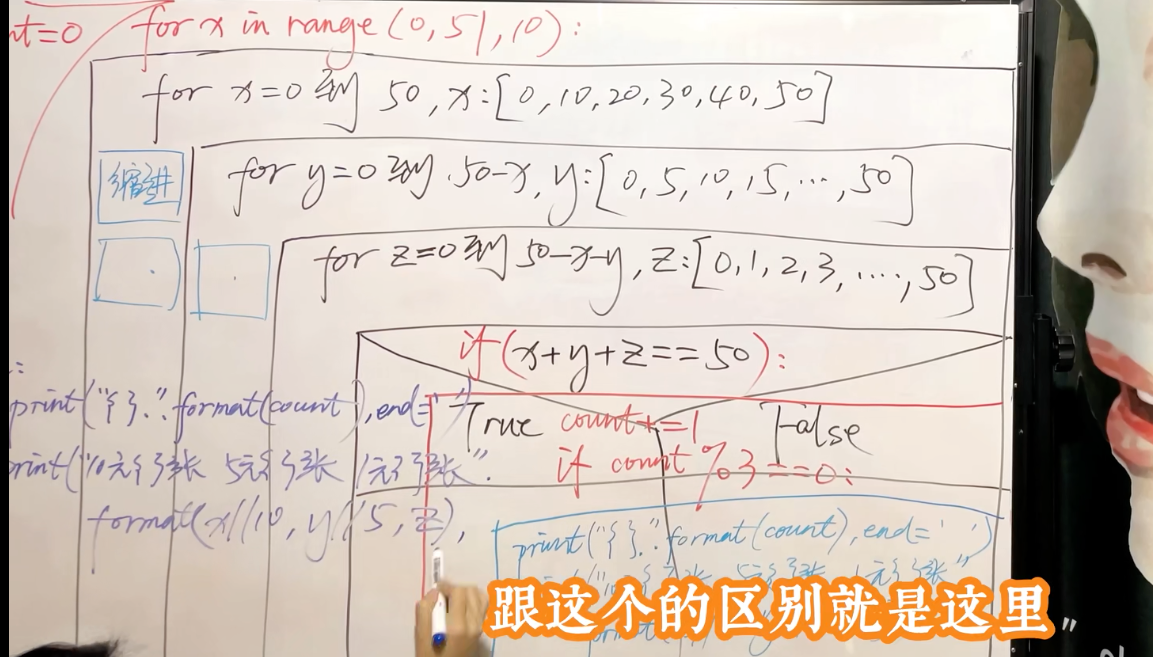 nt=0 for x in range(0,51,10):
for x=0到 50, x:[0,10,20,30,40,50]
缩进
for y=0到 50-x, y:[0,5,10,15,…,50]
for z=0到 50-x-y, z:[0,1,2,3,…,50]
if(x+y+z==50):
:
print("{}.".format(count),end=' ')
True count+=1 False
rint("10元{}张 5元{}张 1元{}张".
if count%3==0:
format(x//10, y//5, z),
print("{}.".format(count),end=' ')
跟这个的区别就是这里